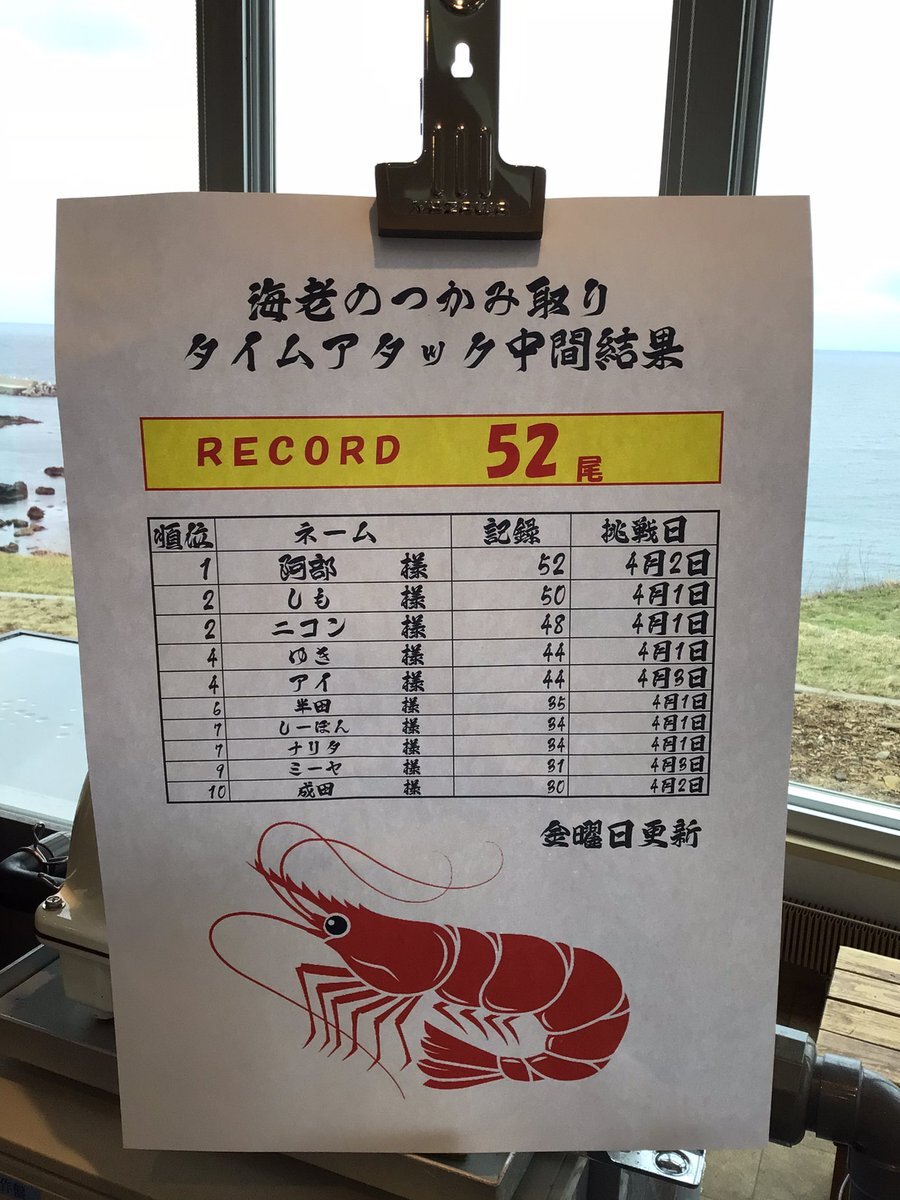 KAZAWA
海老のつかみ取り
タイムアタック中間結果
RECORD 52尾
順位 ネーム 記録 挑戦日
1 阿部 様 52 4月2日
2 しも 様 50 4月1日
2 ニコン 様 48 4月1日
4 ゆき 様 44 4月1日
4 アイ 様 44 4月3日
6 半田 様 35 4月1日
7 しーぽん 様 34 4月1日
7 ナリタ 様 34 4月1日
9 ミーヤ 様 31 4月3日
10 成田 様 30 4月2日
金曜日更新